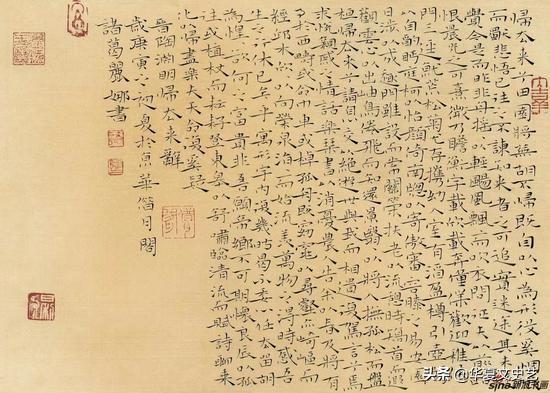 歸去來兮田園將蕪胡不歸既自以心為形役奚惆悵
而獨悲悟已往之不諫知來者之可追實迷途其未遠
覺今是而昨非舟搖以輕颺風飄而吹衣問征夫以前路
恨晨光之熹微乃瞻衡宇載欣載奔僮僕歡迎稚子候
門三逕就荒松菊猶存攜幼入室有酒盈樽引壺觴
以自酌眄庭柯以怡顏倚南窗以寄傲審容膝之易安園
日涉以成趣門雖設而常關策扶老以流憩時矯首而遐
觀雲無心以出岫鳥倦飛而知還景翳以將入撫孤松而盤
桓歸去來兮請息交以絕遊世與我而相遺復駕言兮焉
求悅親戚之情話樂琴書以消憂農人告余以春及將有
事於西疇或命巾車或棹孤舟既窈窕以尋壑亦崎嶇而
經丘木欣以向榮泉涓而始流羨萬物之得時感吾
生之行休已矣乎寓形宇內復幾時曷不委心任去留胡
為遑欲何之富貴非吾願帝鄉不可期懷良辰以孤
往或植杖而耘耔登東皋以舒嘯臨清流而賦詩聊乘
化以歸盡樂夫天命復奚疑
晉陶淵明歸去來辭
歲庚寅之初夏於京華偕月閣
諸葛麗娜書
头条@华夏文史艺
sina新浪书画